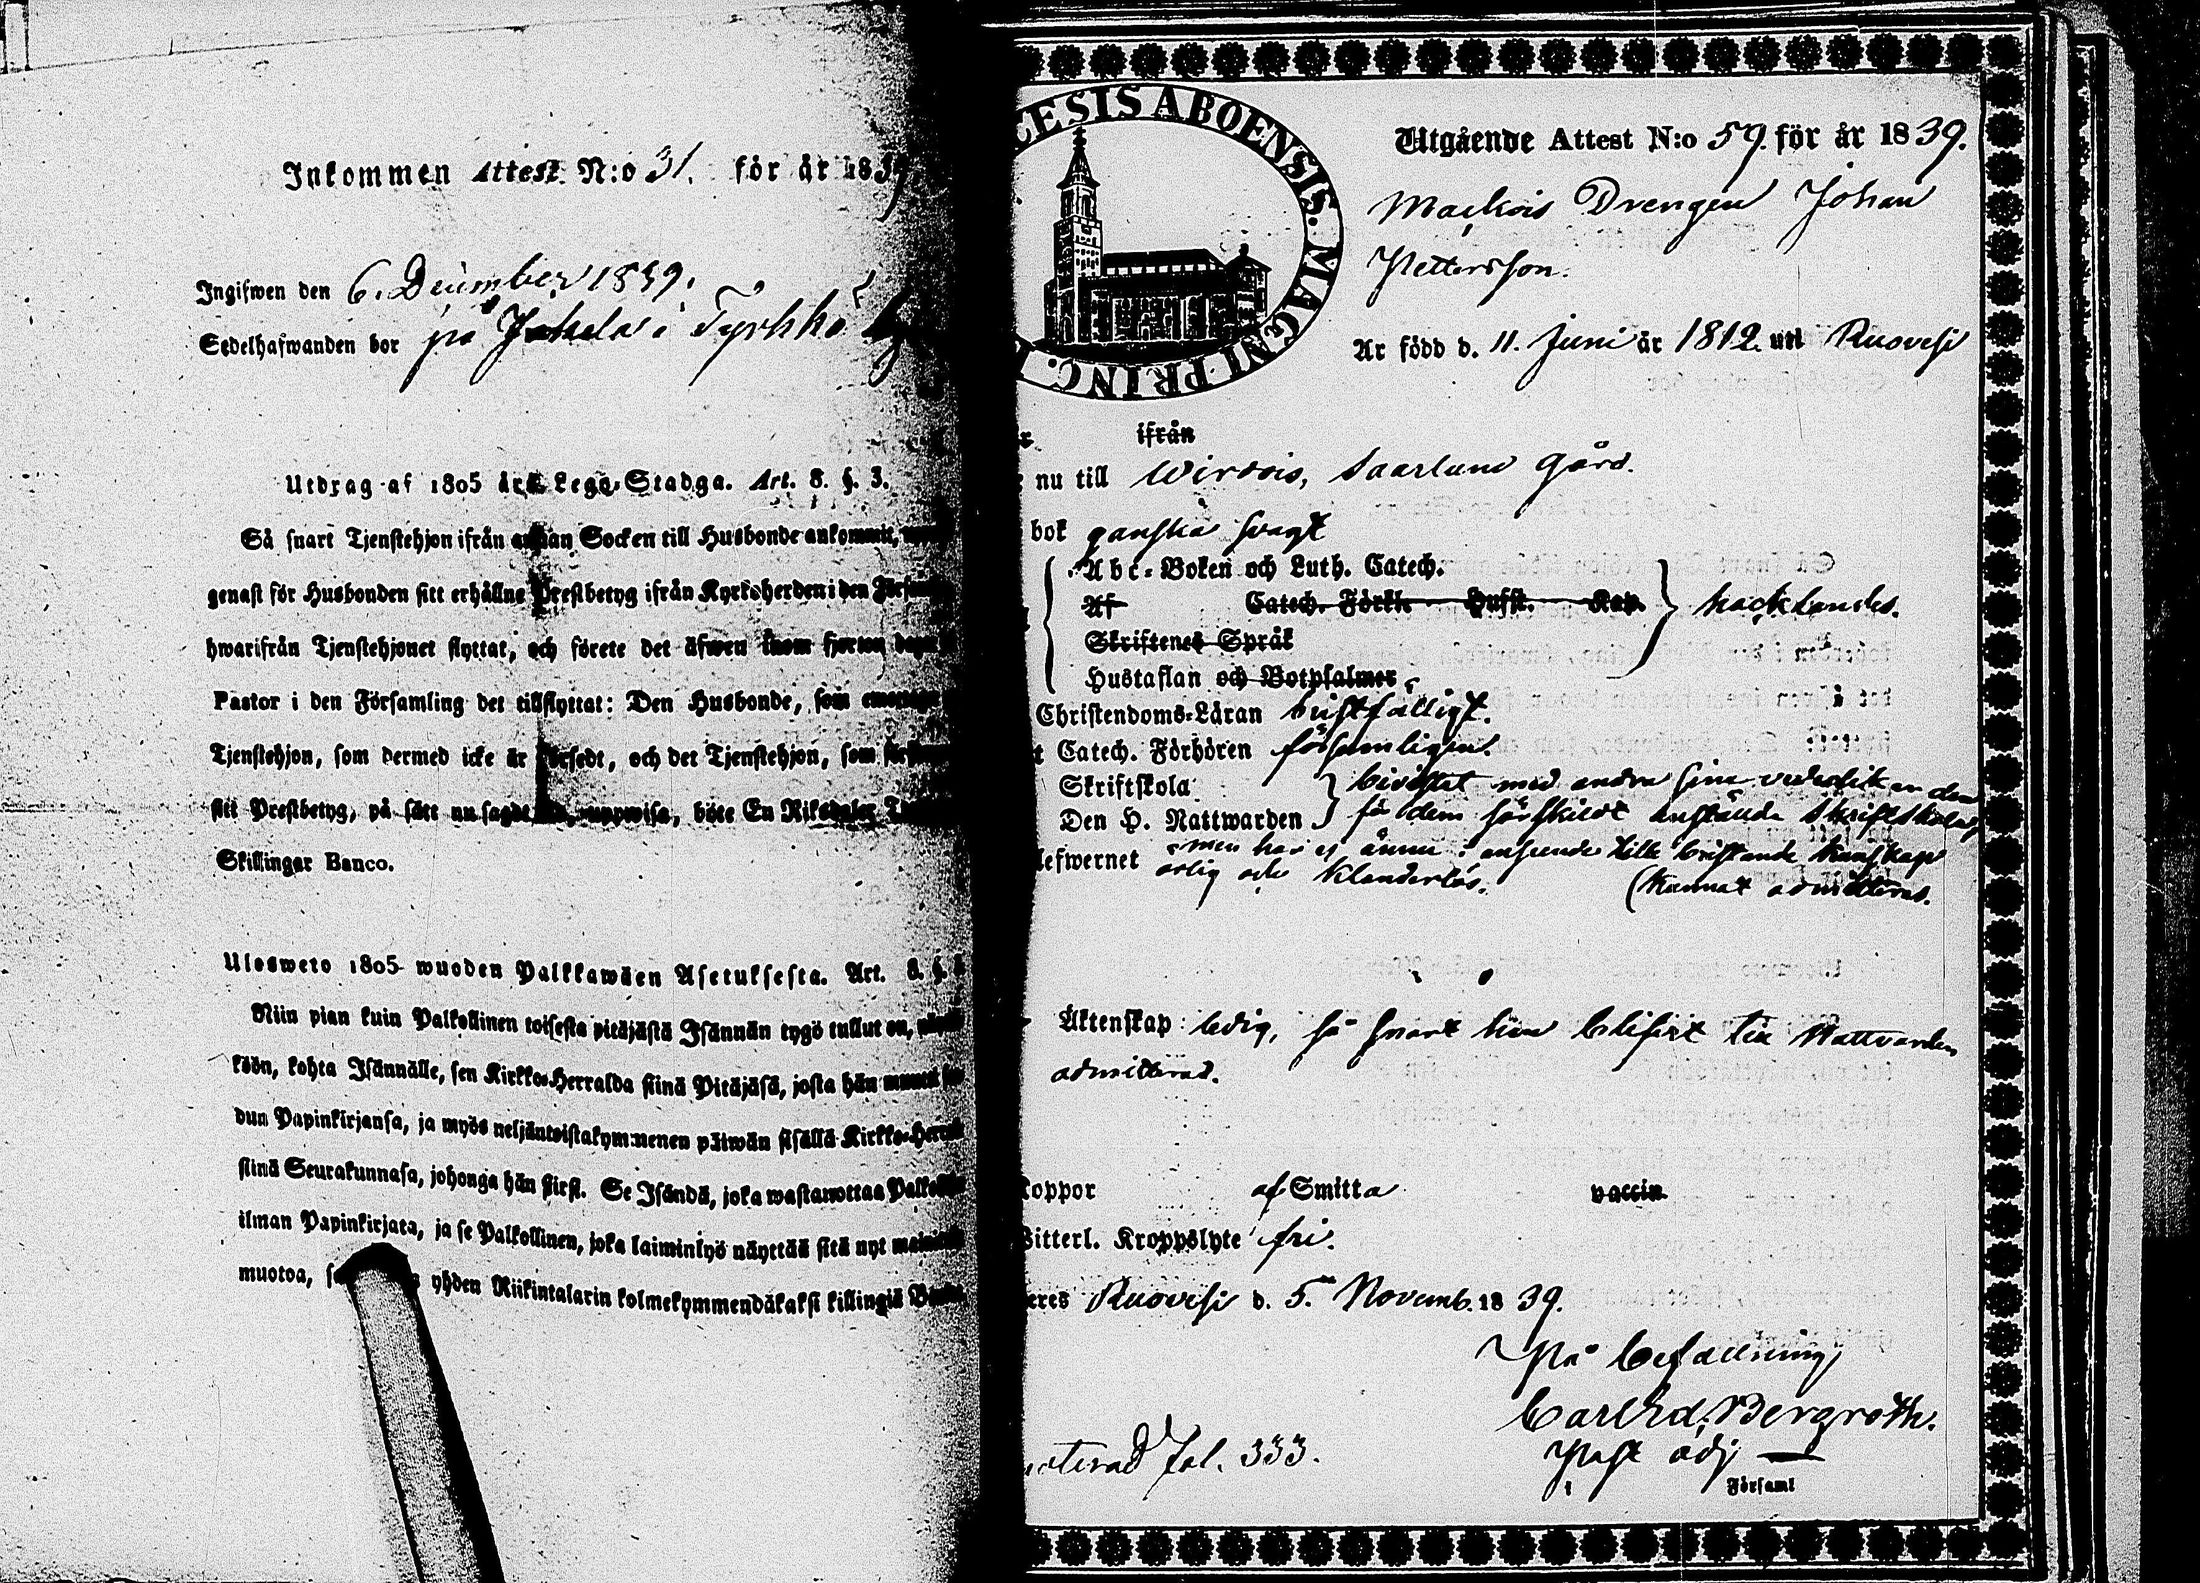 Inkommen Attest N:o 31. för år 1839
Ingifwen den 6. December 1839.
Sedelhafwanden bor på i Tyrkkö
Utdrag af 1805 års Lego-Stadga. Art. 8. §. 3.
Så snart Tjenstehjon ifrån annan Socken till Husbonde ankommit,
genast för Husbonden sitt erhållne Prestbetyg ifrån Kyrkoherden i den
hwarifrån Tjenstehjonet flyttat, och förete det äfwen inom fjorton dagar
Pastor i den Församling det tillflyttat: Den Husbonde, som emottager
Tjenstehjon, som dermed icke är försedt, och det Tjenstehjon, som
sitt Prestbetyg, på sätt nu sagdt är, uppwisa, böte En Riksdaler
Skillingar Banco.
Ulosweto 1805 wuoden Palkkawäen Asetuksesta. Art. 8. §.
Niin pian kuin Palkollinen toisesta pitäjästä Isännän tygö tullut on,
köön, kohta Isännälle, sen Kirkko-Herralda siinä Pitäjäsä, josta hän
dun Papinkirjansa, ja myös neljäntoistakymmenen päiwän sisällä Kirkko-
siinä Seurakunnasa, johonga hän siirsi. Se Isändä, joka wastanottaa
ilman Papinkirjata, ja se Palkollinen, joka laiminlyö näyttää sitä nyt
muotoa, yhden Riikintalarin kolmekymmendäkaksi killingiä
CESIS ABOENSIS. MAGNI PRINC.
Utgående Attest N:o 59. för år 1839.
Drengen Johan
Pettersson.
Är född d. 11. Juni år 1812. uti Ruovesi
ifrån
nu till Wirdois, gård.
bok ganska svagt
Abc-Boken och Luth. Catech.
Af Catech. Förkl. Hufst. Kap. hacklandes.
Skriftenes Språk
Hustaflan och Botpsalmer
Christendoms-Läran bristfälligt.
Catech. Förhören församligen.
Skriftskola bivistat med andra sina vederlikar den
Den H. Nattwarden för dem särskildt anstälda Skriftskolan,
lefwernet men har ej ännu i anseende till bristande kunskap
ärlig och klanderlös. (kunnat admitteras.
Äktenskap ledig, så snart han blifvit till Nattvarden
admitterad.
koppor af Smitta vaccin.
Witterl. Kroppslyte fri.
Ruovesi d. 5. Novemb. 1839.
På befallning,
Bergroth.
Past adj
Församl
Fol. 333.